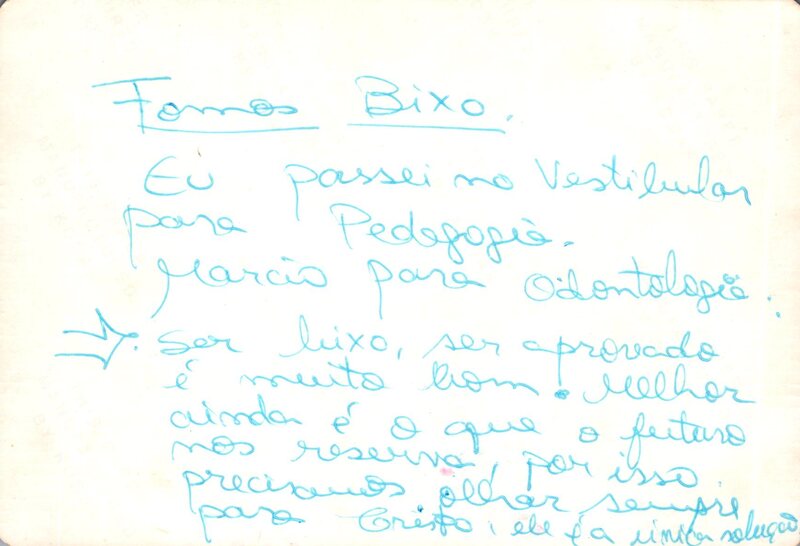 Fomos Bixo.
Eu passei no Vestibular
para Pedagogia.
Marcio para Odontologia.
Ser bixo, ser aprovado
é muito bom. Melhor
ainda é o que o futuro
nos reserva, por isso
precisamos olhar sempre
para Cristo, ele é a única solução